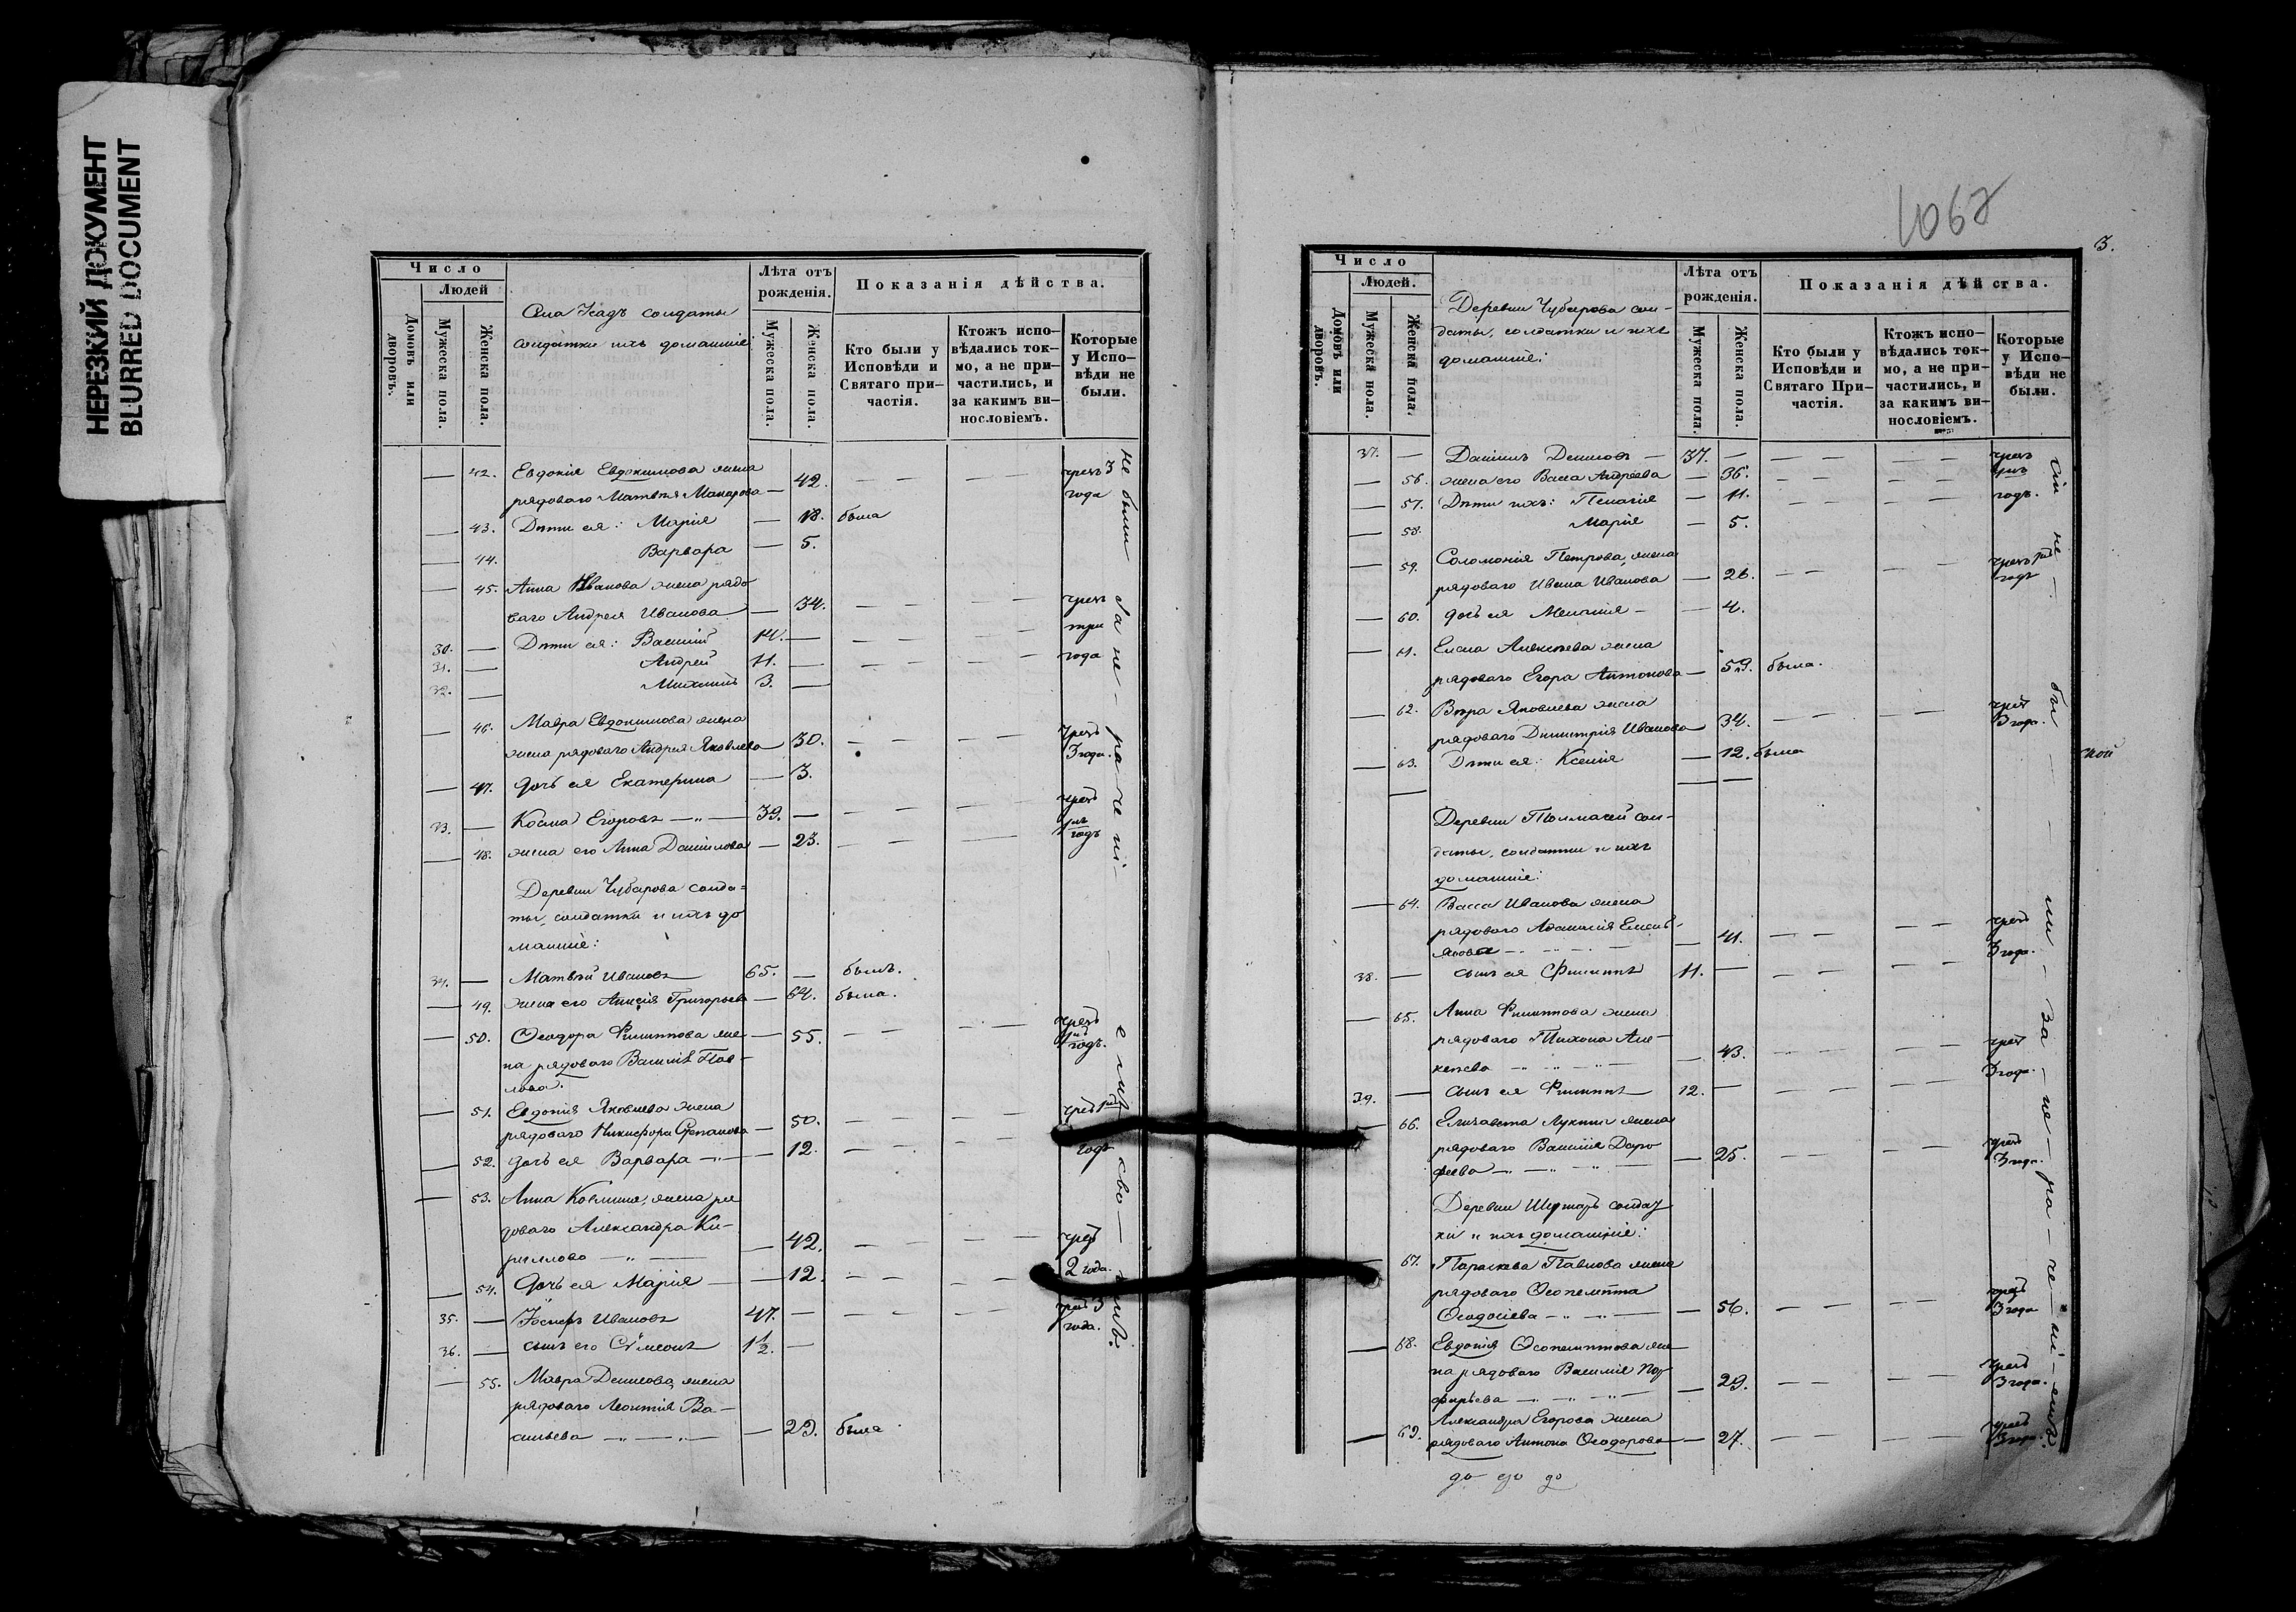 НЕРЕЗКИЙ ДОКУМЕНТ
BLURRED DOCUMENT
Число
Людей
Домовъ или дворовъ.
Мужеска пола.
Женска пола.
Села Кадъ солдаты
солдатки ихъ домашніе
Лѣта отъ рожденія.
Мужеска пола.
Женска пола.
Показанія дѣйства.
Кто были у Исповѣди и Святаго при-
частія.
Ктожъ испо-
вѣдались ток-
мо, а не при-
частились, и
за какимъ ви-
нословіемъ.
Которые
у Испо-
вѣди не
были.
— 42. Евдокия Евдокимова жена
рядоваго Матвѣя Макарова — 42. — — — — чрезъ 3
года
— 43. Дѣти ея: Марія — 18. была
— 44. Варвара — 5.
— 45. Анна Иванова жена рядо
ваго Андрея Иванова — 34. — — — чрезъ
три
года
30. — Дѣти ея: Василій 14. —
31. — Андрей 11. —
32. — Михаилъ 3. —
— 46. Мавра Евдокимова жена
жена рядоваго Андрея Яковлева — 30. — — — чрезъ
3 года.
— 47. дочь ея Екатерина — 3.
33. — Косма Егоровъ — 39. — чрезъ
годъ
— 48. жена его Анна Даниилова — 23.
Деревни Чубарова солда-
ты, солдатки и ихъ до
машніе:
34. — Матвѣй Ивановъ 65. — былъ.
— 49. жена его Анисія Григорьева — 64. была.
— 50. Ѳеодора Филиппова же-
на рядоваго Василія Пав-
лова. — 55. — — чрезъ
годъ.
— 51. Евдокия Яковлева жена
рядоваго Никифора Степанова — 50. —
годъ
— 52. дочь ея Варвара — 12. — — —
— 53. Анна Козмина, жена ря
доваго Александра Ки-
риллова — 42. — — — чрезъ
2 года.
— 54. Дочь ея Марія — 12. — — —
35. — Іосифъ Ивановъ 47. — — — чрезъ 3
года.
36. — сынъ его Сѵмеонъ 1½. —
— 55. Мавра Денисова, жена
рядоваго Леонтія Ва-
сильева — 29. была
не были за не-ра-че-ні-
1067
3.
Число
Людей.
Домовъ или дворовъ.
Мужеска пола.
Женска пола.
Деревни Чубарова сол-
даты, солдатки и ихъ
домашніе:
Лѣта отъ рожденія.
Мужеска пола.
Женска пола.
Показанія дѣйства.
Кто были у Исповѣди и Святаго При-
частія.
Ктожъ испо-
вѣдались ток-
мо, а не при-
частились, и
за какимъ ви-
нословіемъ.
Которые
у Испо-
вѣди не
были.
37. — Даніилъ Денисовъ — 37. — чрезъ
годъ.
— 56. жена его Васса Андреева — 36.
— 57. Дѣти ихъ: Пелагія — 11.
— 58. Марія — 5.
— 59. Соломонія Петрова, жена
рядоваго Ивана Иванова — 26. — — чрезъ
годъ
— 60. дочь ея — 4.
— 61. Елена Алексѣева жена
рядоваго Егора Антонова — 59. была.
— 62. Вѣра Яковлева жена
рядоваго Димитрія Иванова 34. — — чрезъ
3 года.
— 63. Дѣти ея: Ксенія — 12. была
Деревни Толмачей сол-
даты, солдатки и ихъ
домашніе:
— 64. Васса Иванова жена
рядоваго Емель-
янова — 41. — — чрезъ
3 года.
38. — сынъ ея Филиппъ 11. —
— 65. Анна Филиппова жена
рядоваго Тихона Але-
ксѣева — 43. чрезъ
3 года.
39. — сынъ ея Филиппъ 12. —
66. Елизавета Лукина жена
рядоваго Василія Доро
феева — 25. — — чрезъ
3 года.
Деревни солдат
ки и ихъ домашніе:
67. Параскева Павлова жена
рядоваго Ѳеопемпта
Ѳеодосіева — 56. — — чрезъ
3 года
— 68. Евдокия Ѳеопемптова же-
на рядоваго Василія Пор
фирьева — 29. — — чрезъ
3 года.
— 69. Александра Егорова жена
рядоваго Антона Ѳеодорова — 27. — — чрезъ
3 года.
сіи не — бы — ли — за — не — ра — че — ні — емъ.